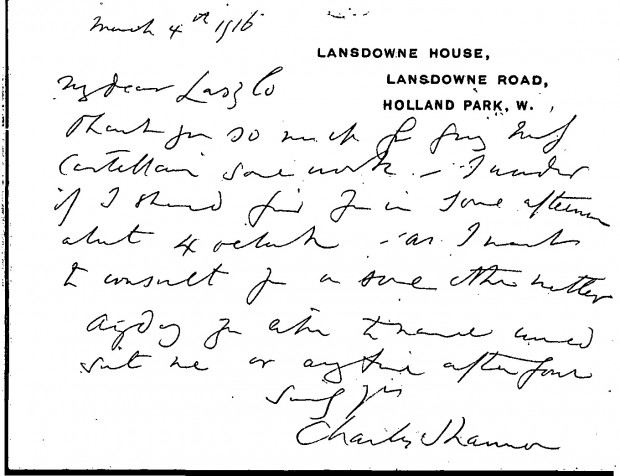 March 4th 1916
LANSDOWNE HOUSE,
LANSDOWNE ROAD,
HOLLAND PARK, W.
My dear Laszlo
Thank you so much for giving
Castellani some work – I wonder
if I should find you in some afternoon
about 4 oclock – as I want
to consult you on some other matter
Any day you like to name would
suit me or any time after four
Charles Shannon